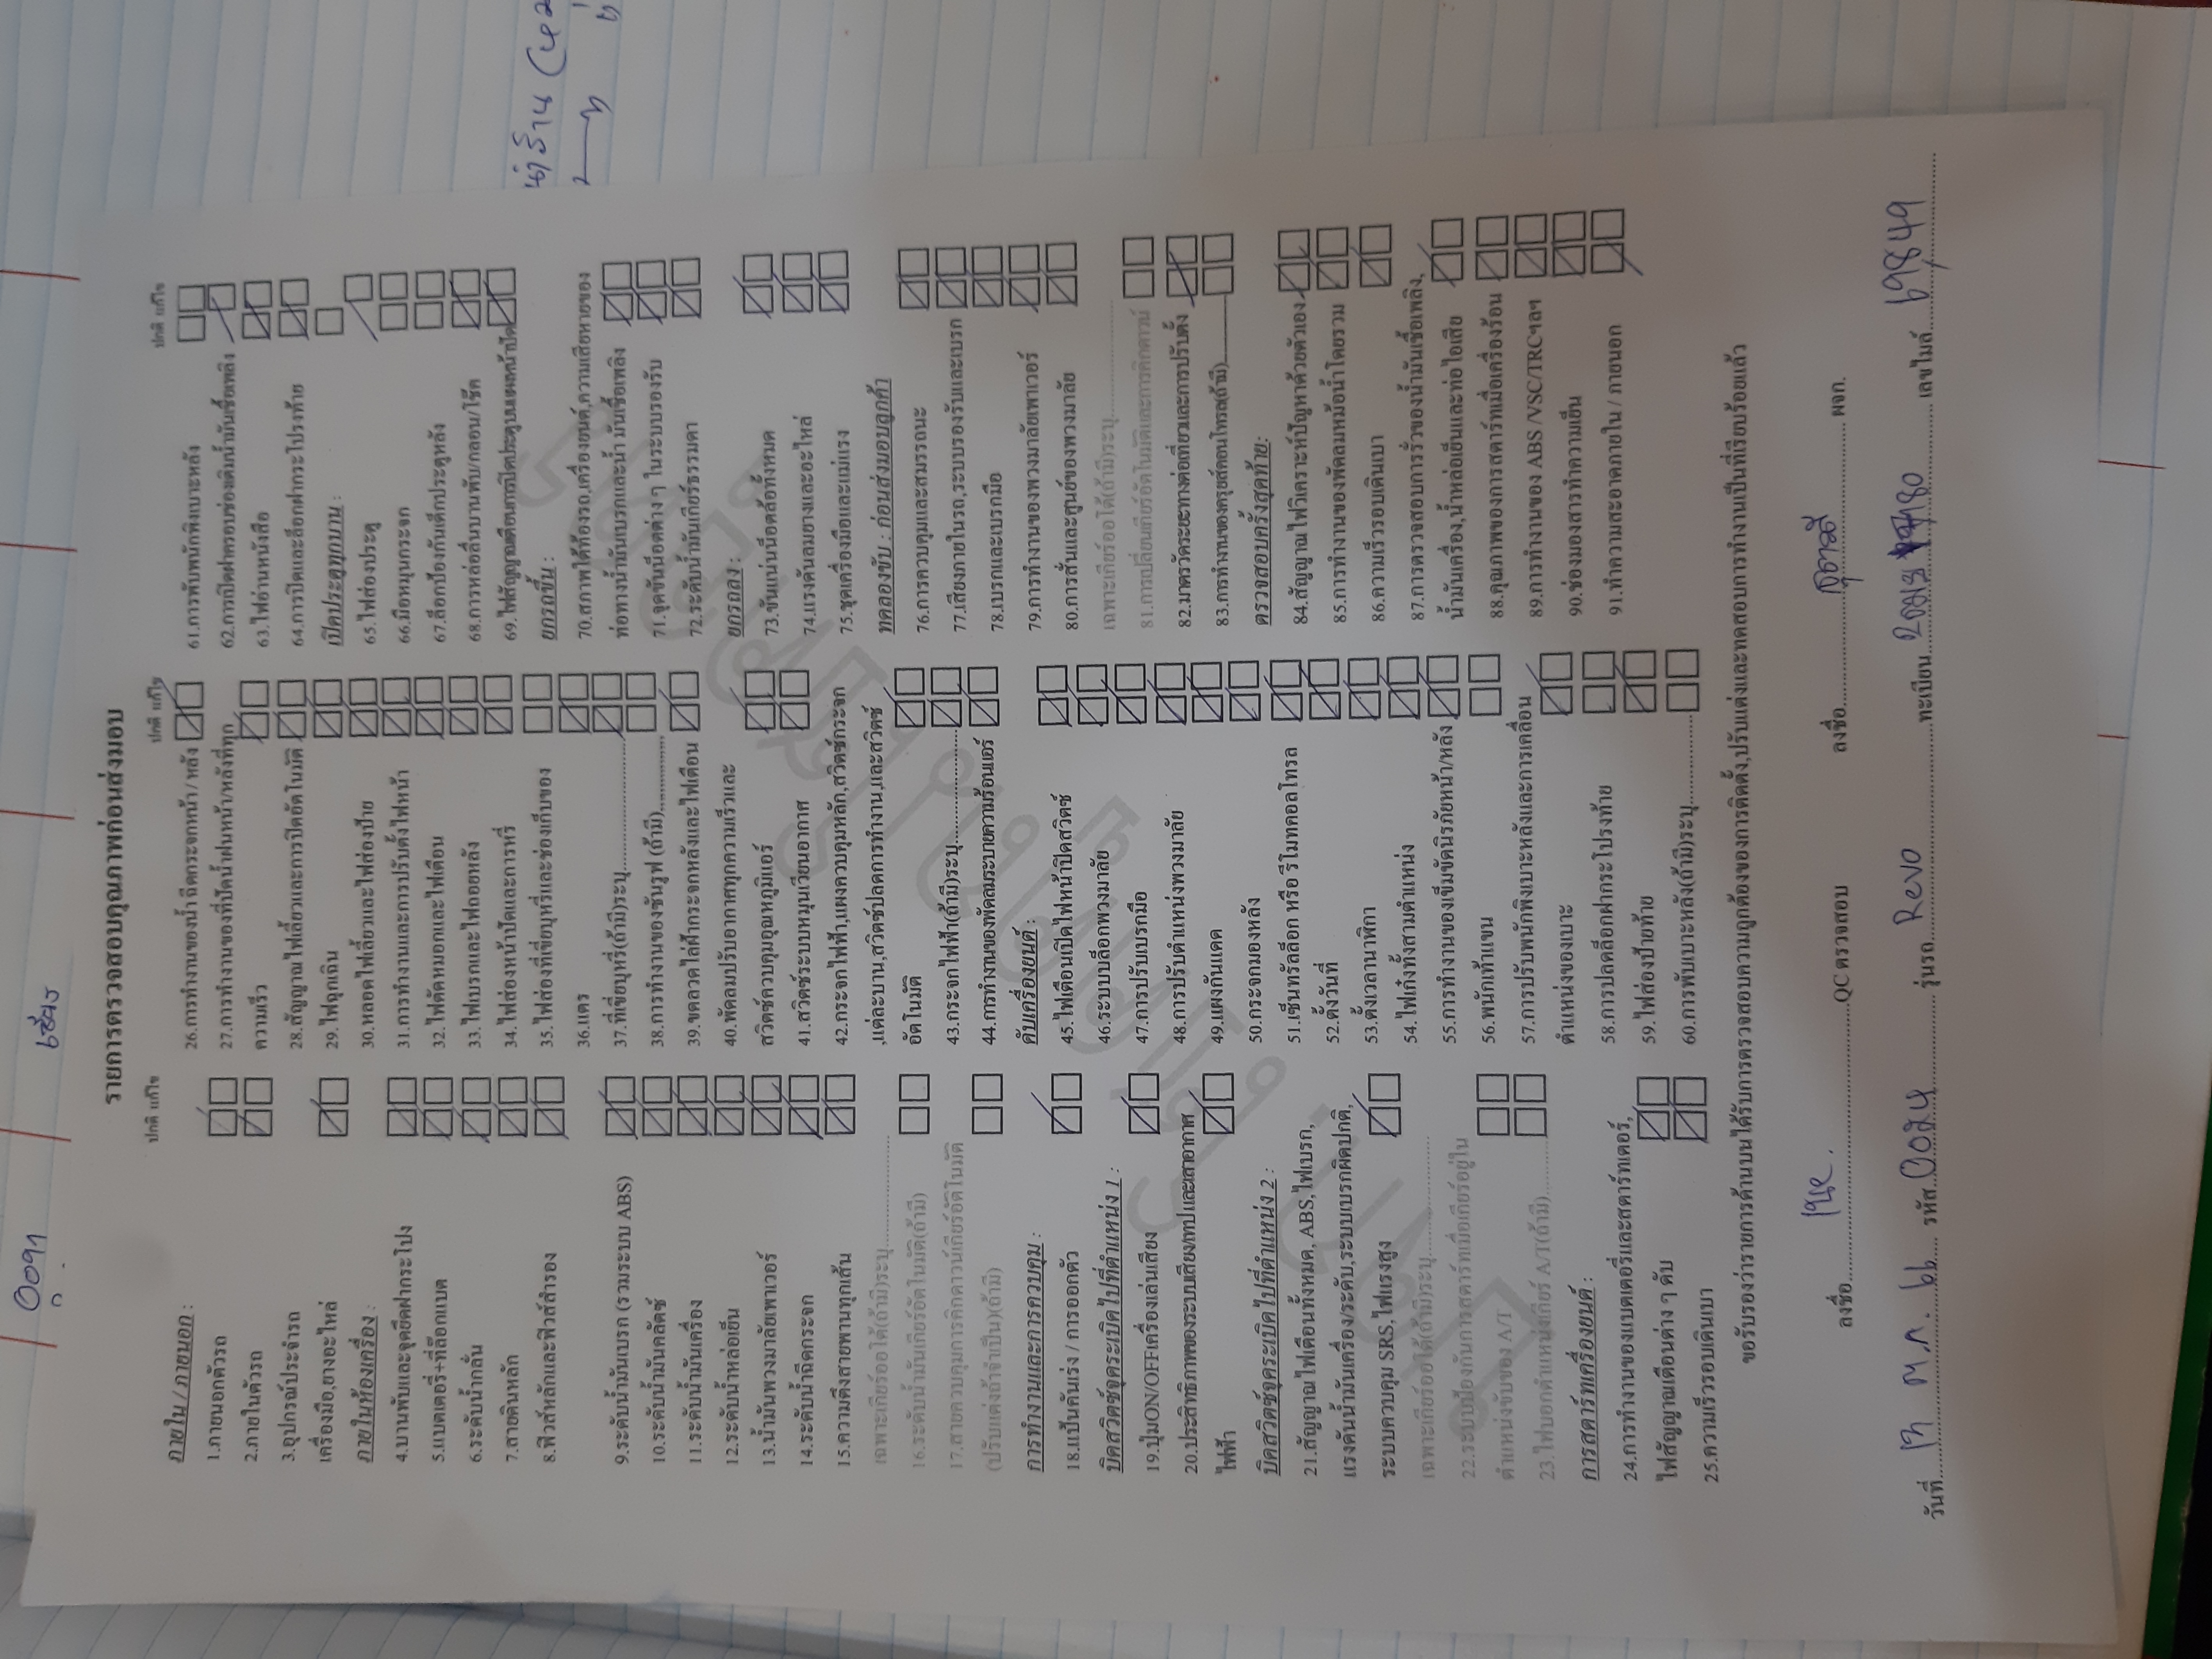 รายการตรวจสอบคุณภาพก่อนส่งมอบ
ปกติ แก้ไข
ภายใน / ภายนอก :
1.ภายนอกตัวรถ
2.ภายในตัวรถ
3.อุปกรณ์ประจำรถ
เครื่องมือ,ยางอะไหล่
ภายในห้องเครื่อง :
4.บานพับและจุดยึดฝากระโปรง
5.แบตเตอรี่+ที่ล็อกแบต
6.ระดับน้ำกลั่น
7.สายดินหลัก
8.ฟิวส์หลักและฟิวส์สำรอง
9.ระดับน้ำมันเบรก (รวมระบบ ABS)
10.ระดับน้ำมันคลัตซ์
11.ระดับน้ำมันเครื่อง
12.ระดับน้ำหล่อเย็น
13.น้ำมันพวงมาลัยเพาเวอร์
14.ระดับน้ำฉีดกระจก
15.ความตึงสายพานทุกเส้น
เฉพาะเกียร์ออโต้(ถ้ามี)ระบุ
16.ระดับน้ำมันเกียร์อัตโนมัติ(ถ้ามี)
17.สายควบคุมการคิกดาวน์เกียร์อัติโนมัติ
(ปรับแต่งถ้าจำเป็น)(ถ้ามี)
การทำงานและการควบคุม :
18.แป้นคันเร่ง / การออกตัว
บิดสวิตช์จุดระเบิดไปที่ตำแหน่ง 1 :
19.ปุ่มON/OFFเครื่องเล่นเสียง
20.ประสิทธิภาพของระบบเสียง/เทปและเสาอากาศ
ไฟฟ้า
บิดสวิตช์จุดระเบิดไปที่ตำแหน่ง 2 :
21.สัญญาณไฟเตือนทั้งหมด, ABS,ไฟเบรก,
แรงดันน้ำมันเครื่อง/ระดับ,ระบบเบรกผิดปกติ,
ระบบควบคุม SRS,ไฟแรงสูง
เฉพาะเกียร์ออโต้(ถ้ามี)ระบุ
22.ระบบป้องกันการสตาร์ทเมื่อเกียร์อยู่ใน
ตำแหน่งขับของ A/T
23.ไฟบอกตำแหน่งเกียร์ A/T(ถ้ามี)
การสตาร์ทเครื่องยนต์ :
24.การทำงานของแบตเตอรี่และสตาร์ทเตอร์,
ไฟสัญญาณเตือนต่าง ๆ ดับ
25.ความเร็วรอบเดินเบา
ปกติ แก้ไข
26.การทำงานของน้ำฉีดกระจกหน้า / หลัง
27.การทำงานของที่ปัดน้ำฝนหน้า/หลังที่ทุก
ความเร็ว
28.สัญญาณไฟเลี้ยวและการปิดอัตโนมัติ
29.ไฟฉุกเฉิน
30.หลอดไฟเลี้ยวและไฟส่องป้าย
31.การทำงานและการปรับตั้งไฟหน้า
32.ไฟตัดหมอกและไฟเตือน
33.ไฟเบรกและไฟถอยหลัง
34.ไฟส่องหน้าปัดและการหรี่
35.ไฟส่องที่เขี่ยบุหรี่และช่องเก็บของ
36.แตร
37.ที่เขี่ยบุหรี่(ถ้ามี)ระบุ
38.การทำงานของซันรูฟ (ถ้ามี)
39.ขดลวดไล่ฝ้ากระจกหลังและไฟเตือน
40.พัดลมปรับอากาศทุกความเร็วและ
สวิตช์ควบคุมอุณหภูมิแอร์
41.สวิตช์ระบบหมุนเวียนอากาศ
42.กระจกไฟฟ้า,แผงควบคุมหลัก,สวิตช์กระจก
,แต่ละบาน,สวิตช์ปลดการทำงาน,และสวิตช์
อัตโนมัติ
43.กระจกไฟฟ้า(ถ้ามี)ระบุ
44.การทำงานของพัดลมระบายความร้อนแอร์
ดับเครื่องยนต์ :
45.ไฟเตือนเปิดไฟหน้าปิดสวิตช์
46.ระบบล็อกพวงมาลัย
47.การปรับเบรกมือ
48.การปรับตำแหน่งพวงมาลัย
49.แผงกันแดด
50.กระจกมองหลัง
51.เซ็นทรัลล็อก หรือ รีโมทคอลโทรล
52.ตั้งวันที่
53.ตั้งเวลานาฬิกา
54.ไฟเก๋งทั้งสามตำแหน่ง
55.การทำงานของเข็มขัดนิรภัยหน้า/หลัง
56.พนักเท้าแขน
57.การปรับพนักพิงเบาะหลังและการเคลื่อน
ตำแหน่งของเบาะ
58.การปลดล็อกฝากระโปรงท้าย
59.ไฟส่องป้ายท้าย
60.การพับเบาะหลัง(ถ้ามี)ระบุ
ปกติ แก้ไข
61.การพับพนักพิงเบาะหลัง
62.การเปิดฝาครอบช่องเติมน้ำมันเชื้อเพลิง
63.ไฟอ่านหนังสือ
64.การปิดและล็อกฝากระโปรงท้าย
เปิดประตูทุกบาน :
65.ไฟส่องประตู
66.มือหมุนกระจก
67.ล็อกป้องกันเด็กประตูหลัง
68.การหล่อลื่นบานพับ/กลอน/โช๊ค
69.ไฟสัญญาณเตือนการปิดประตูบนแผงหน้าปัด
ยกรถขึ้น :
70.สภาพใต้ท้องรถ,เครื่องยนต์,ความเสียหายของ
ท่อทางน้ำมันเบรกและน้ำมันเชื้อเพลิง
71.จุดขันน็อตต่าง ๆ ในระบบรองรับ
72.ระดับน้ำมันเกียร์ธรรมดา
ยกรถลง :
73.ขันแน่นน็อตล้อทั้งหมด
74.แรงดันลมยางและอะไหล่
75.ชุดเครื่องมือและแม่แรง
ทดลองขับ : ก่อนส่งมอบลูกค้า
76.การควบคุมและสมรรถนะ
77.เสียงภายในรถ,ระบบรองรับและเบรก
78.เบรกและเบรกมือ
79.การทำงานของพวงมาลัยเพาเวอร์
80.การสั่นและศูนย์ของพวงมาลัย
เฉพาะเกียร์ออโต้(ถ้ามี)ระบุ
81.การเปลี่ยนเกียร์อัตโนมัติและการคิกดาวน์
82.มาตรวัดระยะทางต่อเที่ยวและการปรับตั้ง
83.การทำงานของครูยส์คอนโทรล(ถ้ามี)
ตรวจสอบครั้งสุดท้าย:
84.สัญญาณไฟวิเคราะห์ปัญหาด้วยตัวเอง
85.การทำงานของพัดลมหม้อน้ำโดยรวม
86.ความเร็วรอบเดินเบา
87.การตรวจสอบการรั่วของน้ำมันเชื้อเพลิง,
น้ำมันเครื่อง,น้ำหล่อเย็นและท่อไอเสีย
88.คุณภาพของการสตาร์ทเมื่อเครื่องร้อน
89.การทำงานของ ABS /VSC/TRCฯลฯ
90.ช่องมองสารทำความเย็น
91.ทำความสะอาดภายใน / ภายนอก
ขอรับรองว่ารายการด้านบนได้รับการตรวจสอบความถูกต้องของการติดตั้ง,ปรับแต่งและทดสอบการทำงานเป็นที่เรียบร้อยแล้ว
ลงชื่อ QC ตรวจสอบ ลงชื่อ ผจก.
วันที่ ๓ ต.ค. ๖๖ รหัส รุ่นรถ Revo ทะเบียน เลขไมล์ 69849